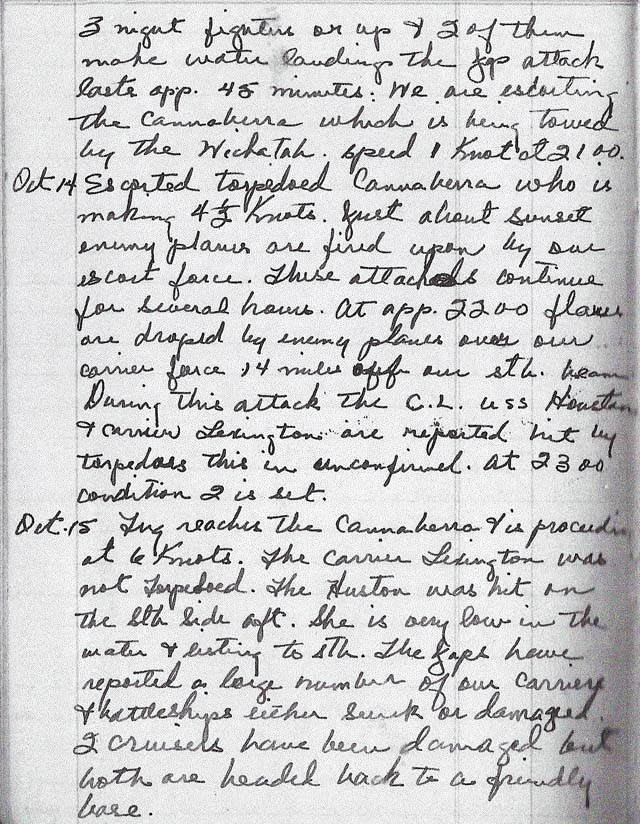 3 night fighters or up & 2 of them
make water landings the Jap attack
lasts app. 45 minutes. We are escorting
the Cannaberra which is being towed
by the Wichatah. speed 1 Knot at 2100.
Oct. 14 Escorted torpedoed Cannaberra who is
making 4 1/2 Knots. Just about sunset
enemy planes are fired upon by our
escort force. These attacks continue
for several hours. At app. 2200 flares
are droped by enemy planes over our
carrier force 14 miles off our stb. beam
During this attack the C.L. USS Houston
& carrier Lexington are reported hit by
torpedoes this in unconfirmed. At 2300
condition 2 is set.
Oct. 15 Tug reaches the Cannaberra & is proceedin
at 6 Knots. The carrier Lexington was
not Torpedoed. The Huston was hit on
the Stb side aft. She is very low in the
water & listing to stb. The Japs have
reported a large number of our carriers
& battleships either sunk or damaged.
2 cruisers have been damaged but
both are headed back to a friendly
base.